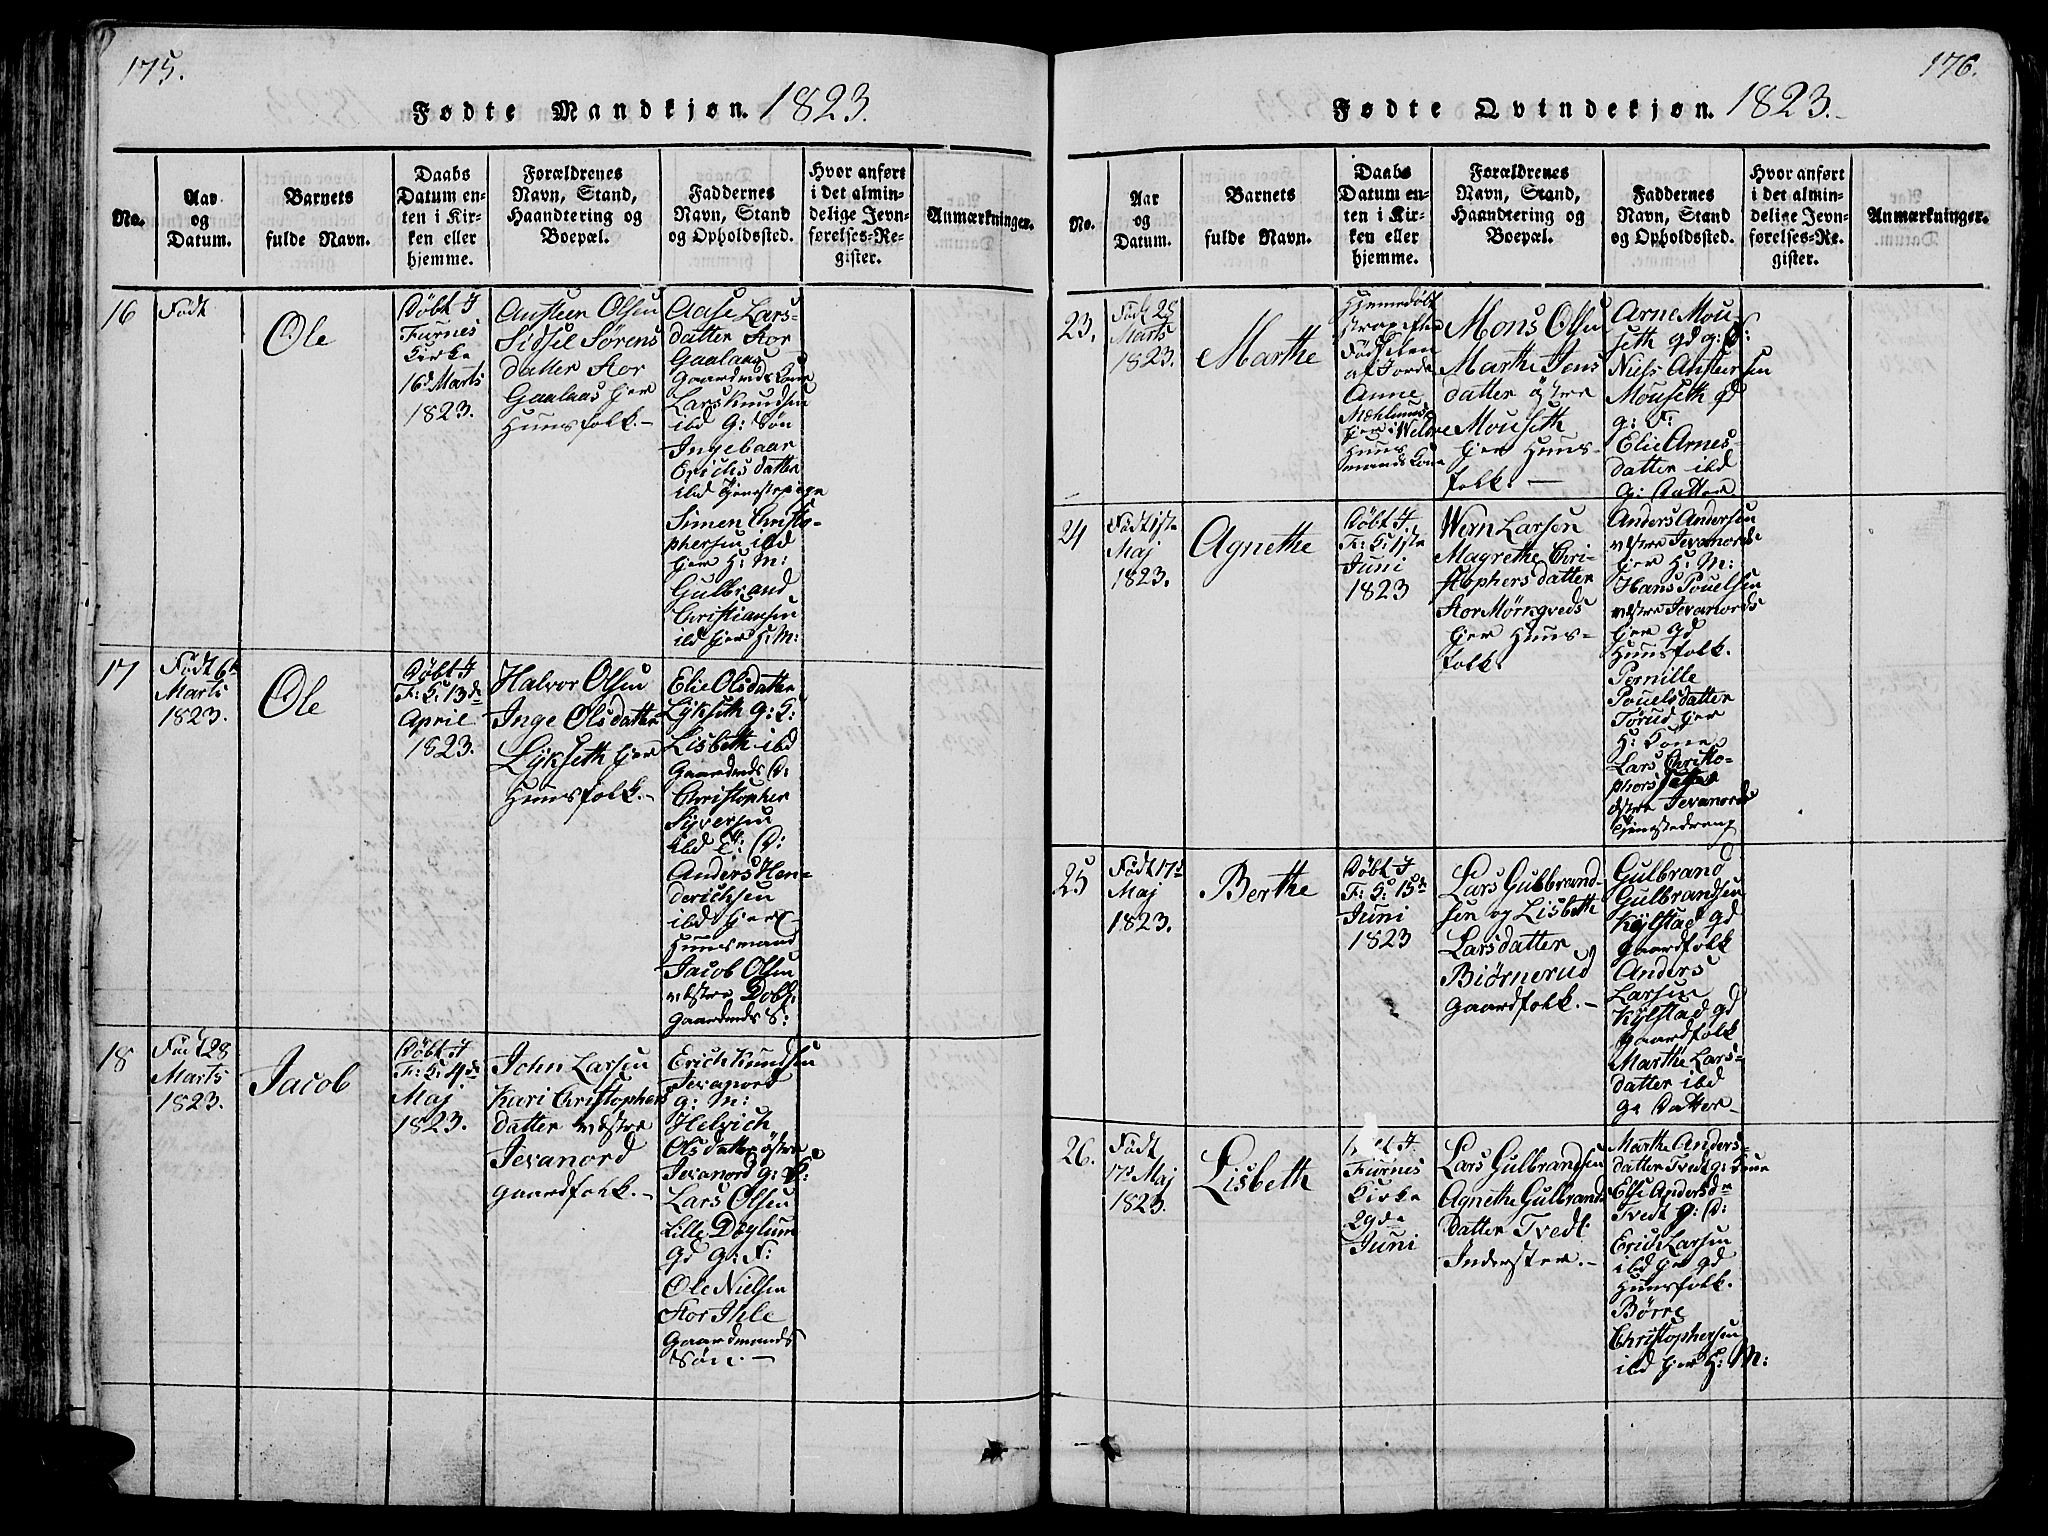 175.
Fødte Mandkjøn. 1823.
No.
Aar
og
Datum.
Barnets
fulde Navn.
Daabs
Datum en-
ten i Kir-
ken eller
hjemme.
Forældrenes
Navn, Stand,
Haandtering og
Boepæl.
Faddernes
Navn, Stand
og Opholdssted.
Hvor anført
i det almin-
delige Jevn-
førelses-Re-
gister.
Anmærkninger.
16
Født
Ole
Døbt I
Furnes
Kirke
16d Marts
1823.
Austeen Olsen
Sidsel Sørens
datter Stor
Gaalaas Eier
Huusfolk.-
Aase Lars-
datter Stor
Gaalaas
Gaardmds Kone
Lars Knudsen
ibd G: Søn
Ingebaar
Erichsdatter
ibd Tjenestepige
Simen Christo-
phersen ibd
Eier H: M:
Gulbrand
Christiansen
ibd Eier H: M:
17
Født 6te
Marts
1823.
Ole
Døbt I
F: K: 13de
April
1823.
Halvor Olsen
Inge Olsdatter
Lykseth Eier
Huusfolk.-
Elie Olsdatter
Lykseth g: K:
Lisbeth ibd
Gaardmds D:
Christopher
Syversen
ibd E: D:
Anders Hen-
derichsen
ibd Eier
Huusmand
Jacob Olsen
vestre Dobl:
Gaardmds S:
18
Født 28
Marts
1823.
Jacob
Døbt I
F: K: 4de
Maj
1823.
John Larsen
Kari Christophers
datter vestre
Jevanord
Gaardfolk.-
Erich Knudsen
Jevanord
g: M:
Helvich
Olsdatter østre
Jevanord g: K:
Lars Olsen
Lille Døglum
gd g: F:
Ole Nielsen
Stor Ihle
Gaardmands
Søn.-
176.
Fødte Qvindekjøn. 1823.-
No.
Aar
og
Datum.
Barnets
fulde Navn.
Daabs
Datum en-
ten i Kir-
ken eller
hjemme.
Forældrenes
Navn, Stand,
Haandtering og
Boepæl.
Faddernes
Navn, Stand
og Opholdssted.
Hvor anført
i det almin-
delige Jevn-
førelses-Re-
gister.
Anmærkninger.
23.
Født 28
Marts
1823.
Marthe
Hjemedøbt
strax efter
Fødselen
af Jorde
Anne
Mæhlumds
Eier i Veldre
Huus
mands Kone
Mons Olsen
Marthe Jens
datter østre
Mouseth
Eier Huus-
folk.-
Arne Mou
seth gd g: K:
Niels Austensen
Mouseth gd
g: F:
Elie Arnes-
datter ibd
g: Datter
24
Født 1ste
Maj
1823.
Agnethe
Døbt I
F: K: 1ste
Juni
1823
Wern Larsen
Magrethe Chri-
stophersdatter
Stor Mørkveds
Eier Huus-
folk.
Anders Andersen
vestre Jevanords
Eier H: M:
Hans Pouelsen
vestre Jevanords
Eier gd
Huusfolk.
Pernille
Pouelsdatter
Tørud Eier
H: Kone
Lars Christo-
phers
østre Jevanords
Tjenestedreng
25
Født 17d
Maj
1823.
Berthe
Døbt I
F: K: 15de
Juni
1823
Lars Gulbrand-
sen og Lisbeth
Larsdatter
Biørnerud
Gaardfolk.-
Gulbrand
Gulbrandsen
Kylstad gd
Gaardfolk
Anders
Larsen
Kylstad gd
Gaardfolk
Marthe Lars-
datter ibd
G: Datter-
26.
Født
17d Maj
1823.
Lisbeth
I
Furnes
Kirke
29de
Juni
Lars Gulbrandsen
Agnethe Gulbrands
Datter Tvedt
Inderster.-
Marthe Anders-
datter Tvedt g: Kone
Else Andersdr
Tvedt g: D:
Erich Larsen
ibd Eier gd
Huusfolk.
Børre
Christophersen
ibd Eier H: M: